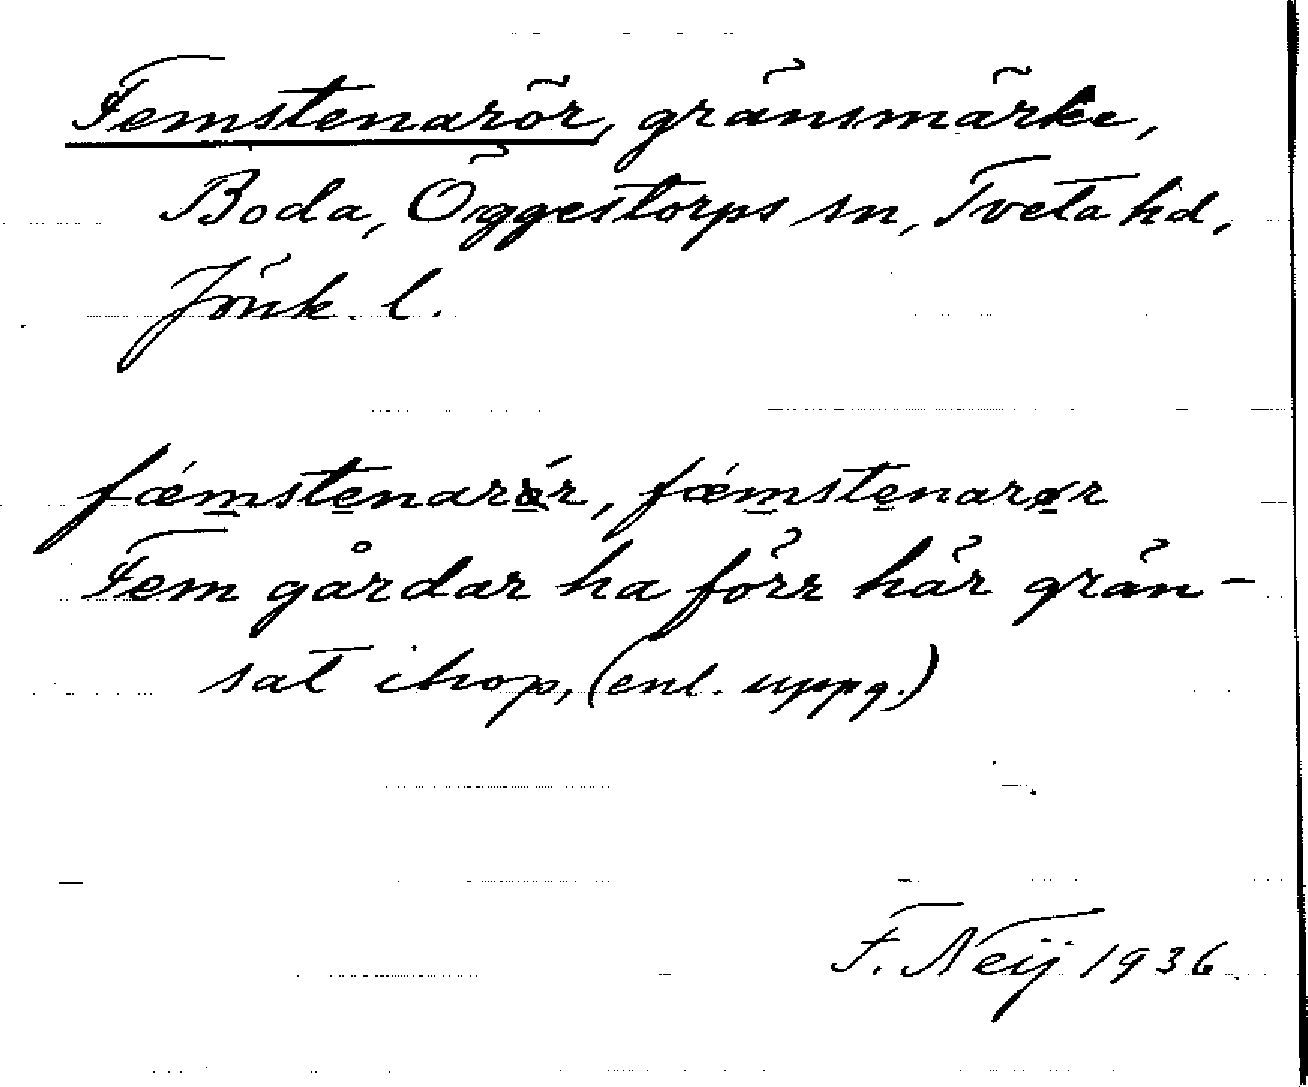 Femstenarör, gränsmärke,
Boda, Öggestorps sn, Tveta hd,
Jönk. l.
fǽmstenarǿr, fǽmstenarør
Fem gårdar ha förr här grän-
sat ihop, (enl. uppg.)
F. Neij 1936.